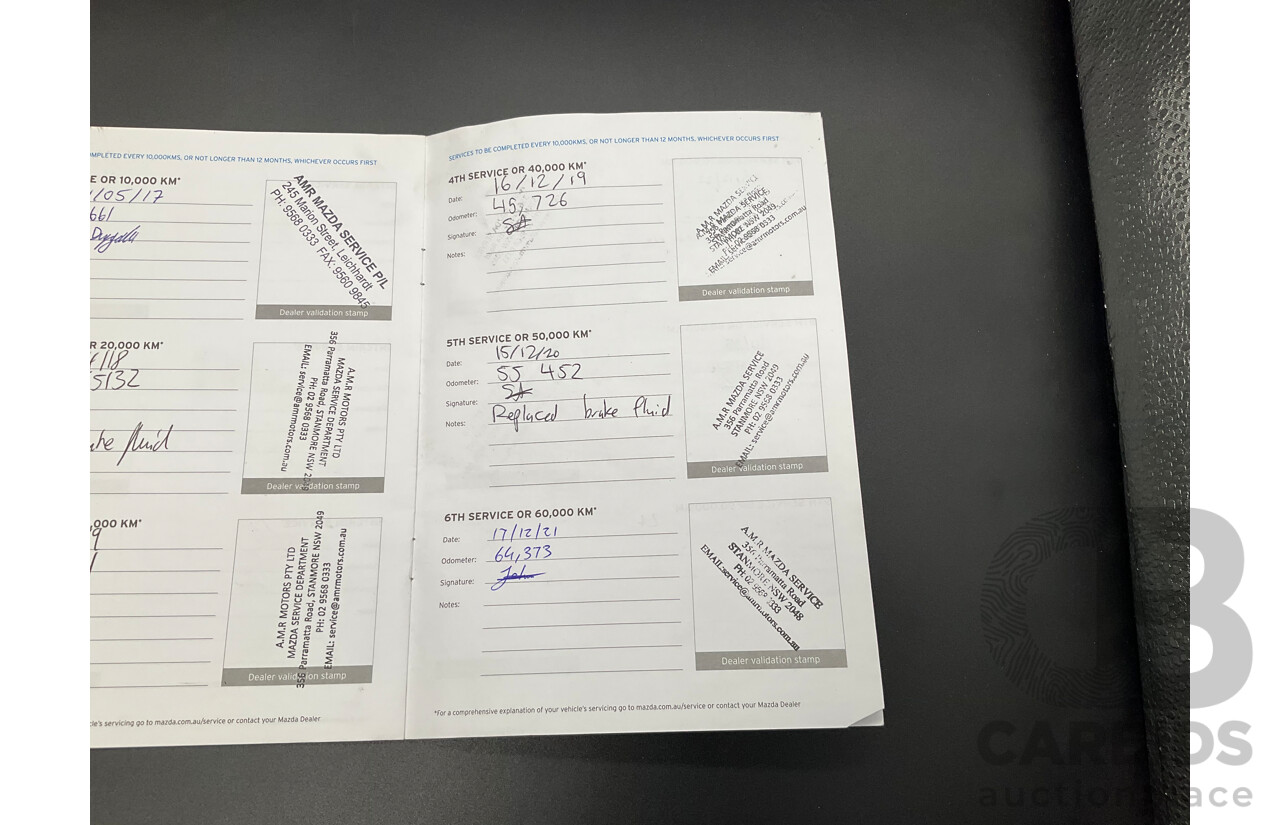 OMPLETED EVERY 10,000KMS, OR NOT LONGER THAN 12 MONTHS, WHICHEVER OCCURS FIRST
E OR 10,000 KM*
/05/17
661
AMR MAZDA SERVICE P/L
245 Marion Street, Leichhardt
PH: 9568 0333 FAX: 9560 9845
Dealer validation stamp
R 20,000 KM*
/18
5132
fluid
A.M.R MOTORS PTY LTD
MAZDA SERVICE DEPARTMENT
356 Parramatta Road, STANMORE NSW 2049
PH: 02 9568 0333
EMAIL: service@amrmotors.com.au
Dealer validation stamp
,000 KM*
9
A.M.R MOTORS PTY LTD
MAZDA SERVICE DEPARTMENT
356 Parramatta Road, STANMORE NSW 2049
PH: 02 9568 0333
EMAIL: service@amrmotors.com.au
Dealer validation stamp
cle's servicing go to mazda.com.au/service or contact your Mazda Dealer
SERVICES TO BE COMPLETED EVERY 10,000KMS, OR NOT LONGER THAN 12 MONTHS, WHICHEVER OCCURS FIRST
4TH SERVICE OR 40,000 KM*
Date: 16/12/19
Odometer: 45,726
Signature: SA
Notes:
A.M.R MAZDA SERVICE
356 Parramatta Road
STANMORE NSW 2049
PH: 02 9568 0333
EMAIL: service@amrmotors.com.au
Dealer validation stamp
5TH SERVICE OR 50,000 KM*
Date: 15/12/20
Odometer: 55 452
Signature: SA
Notes: Replaced brake fluid
A.M.R MAZDA SERVICE
356 Parramatta Road
STANMORE NSW 2049
PH: 02 9558 0333
EMAIL: service@amrmotors.com.au
Dealer validation stamp
6TH SERVICE OR 60,000 KM*
Date: 17/12/21
Odometer: 64,373
Signature: John
Notes:
A.M.R MAZDA SERVICE
356 Parramatta Road
STANMORE NSW 2048
PH: 02 9568 0333
EMAIL: service@amrmotors.com.au
Dealer validation stamp
*For a comprehensive explanation of your vehicle's servicing go to mazda.com.au/service or contact your Mazda Dealer